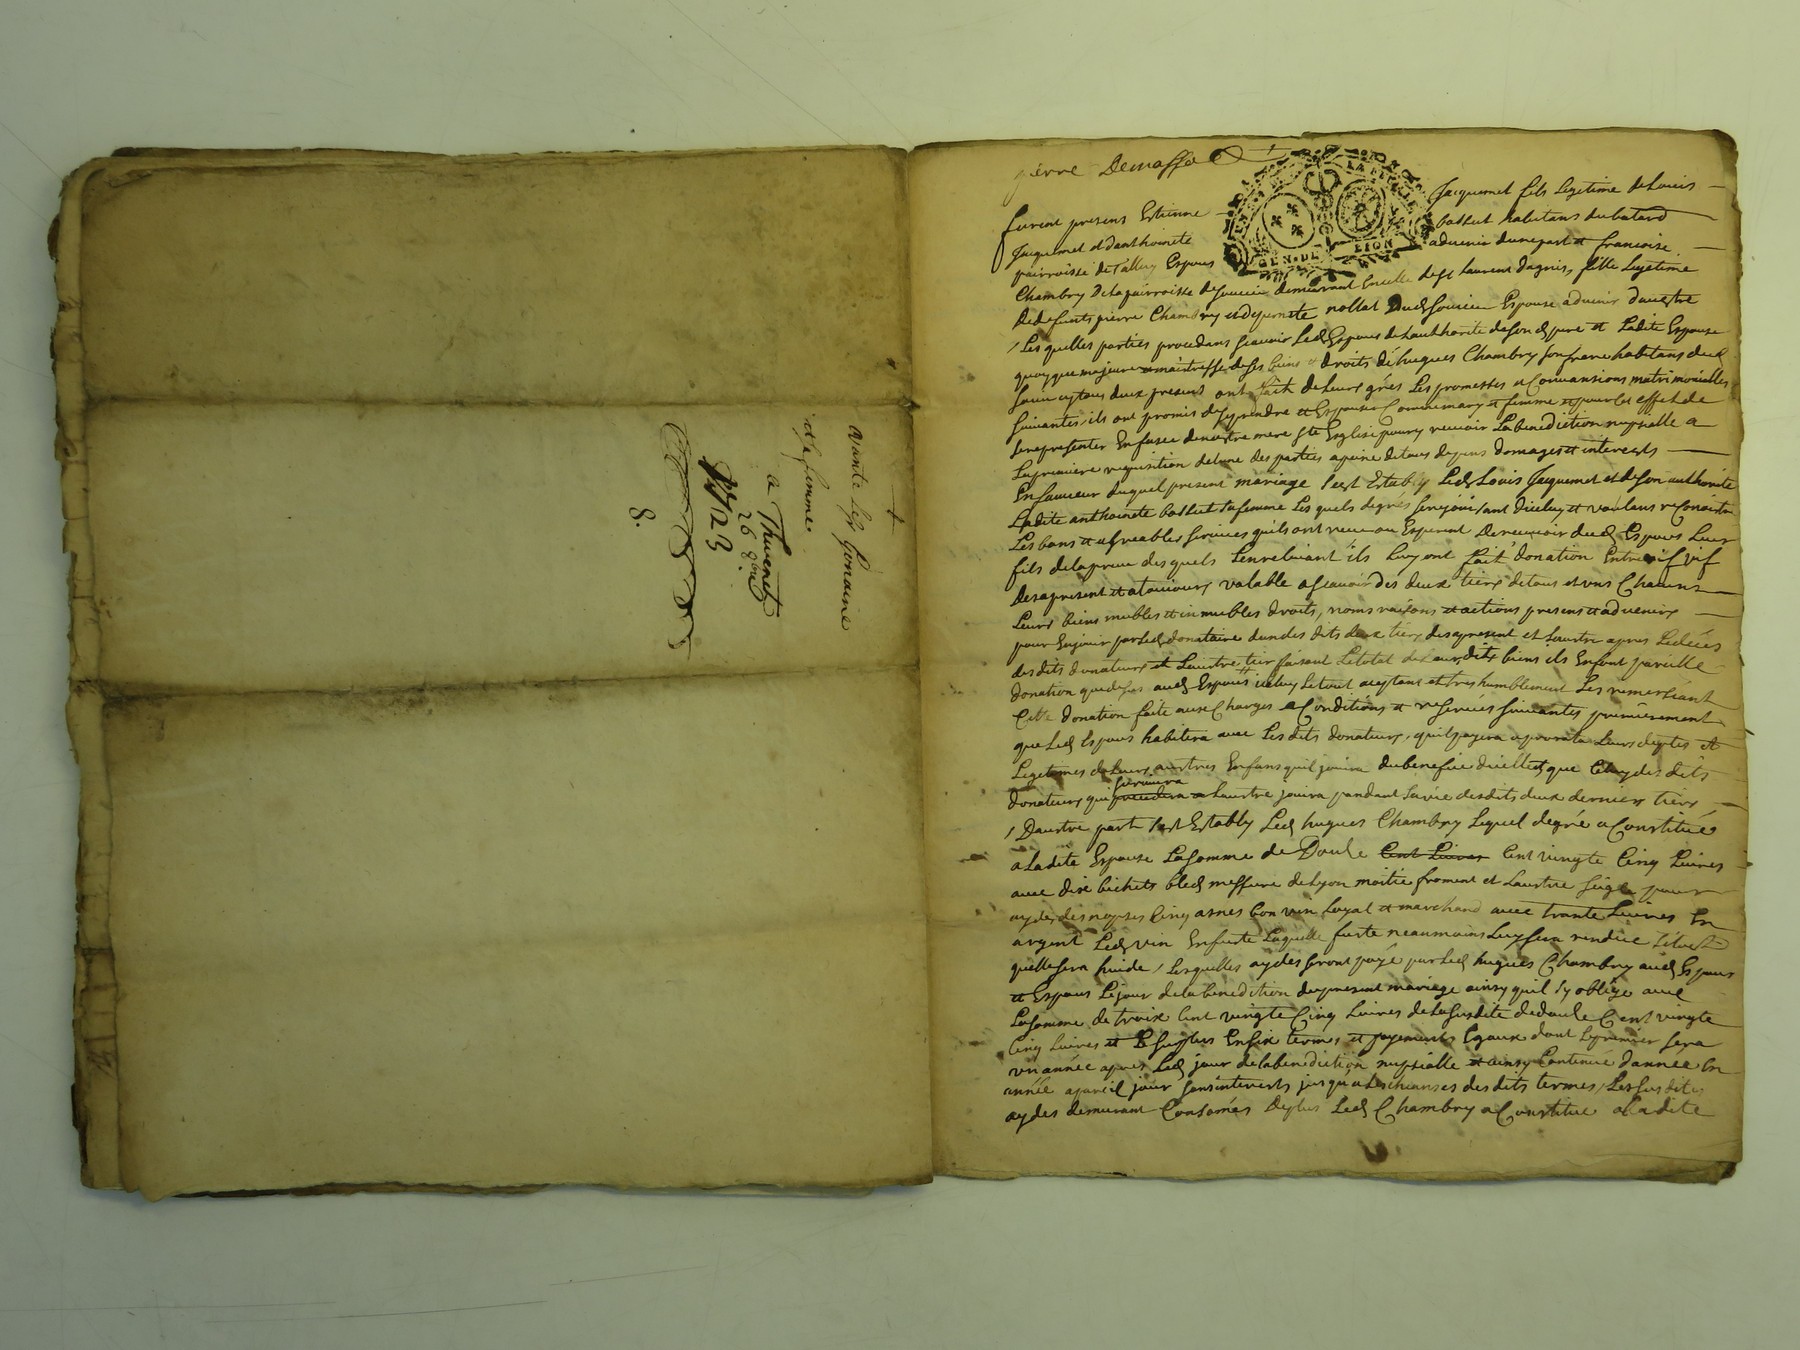 vante les Gonaine
et sa femme.
a Thurente
1723
26 8bre
8.
pierre Demasso
GEN. DE LION
furent presens Estienne Jacquemet fils Legetime de Louis
Jacquemet et danthoinete ballut habitans du batard
pairroisse de Talluy Espous advenir dunepart et francoise
Chambry De la pairroisse de soucieu demeurant en celle de st Laurent dagnis, fille Legetime
de defunts pierre Chambry et de pernete nollat dud soucieu Espouse advenir dauestre
Les quelles parties procedans scavoir Led Espous de Lauthorite de son d pere et Ladite Espouse
quoy que majeure et maistresse de ses biens et droits de hugues Chambry son frere habitans dud
soucieu y tous deux presens ont fait de leurs grés Les promesses et Convansions matrimonialles
suivantes, ils ont promis de se prendre et Espouser Comme mary et femme et pour Cet effect de
se representer En face de nostre mere ste Esglise pour y recevoir La benediction nuptialle a
La premiere requisition de lune des parties a peine de tous depens domages et interests
En faveur duquel present mariage s'est Estably Led Louis Jacquemet et de son authorité
Ladite anthoinete ballut sa femme Les quels de grés se rejouissant diceluy et voulans reConoistre
Les bons et agreables services quils ont receu ou Esperent de recevoir dud Espous Leur
fils de la preuve des quels Lenrelevant ils Luy ont fait donation Entre vif vif
Des a present et a toujours valable a scavoir des deux tiers de tous et uns Chacuns
Leurs biens meubles et inmeubles droits, noms raisons et actions presens et advenirs
pour En jouir par Led donataire dun des dits deux tiers des a present et Lautre apres Le decés
des dits donateurs et Lautre tier faisant Le total de Leurs dits biens ils En font pareille
donation que dessus aud Espous iceluy Le tout aceptant et tres humblement Les remersiant
Cette donation faite aux Charges et Conditions et reserves suivantes premierement
que Led Espous habitera avec Les dits donateurs, quil payera a prorata Leurs deptes et
Legetimes de Leurs auttres Enfans quil jouira du benefice dicelles que Celuy des dits
survivra
donateurs qui Lautre jouira pandant sa vie des dits deux derniers tiers
Dautre part s'est Estably Led hugues Chambry Lequel de gré a Constitué
a Ladite Espouse La somme de Doule Cent Livres Cent vingte Cinq Livres
avec dix bichets bled messure de Lyon moitie froment et Lautre seigle pour
aydes des nopses Cinq asnes bon vin Loyal et marchand avec trante Livres En
argent Led vin En fuste Laquelle fuste neaumoins Luy sera rendue
quelle sera huide, Lesquelles aydes seront payé par Led hugues Chambry aud Espous
et Espous Le jour de la benedition du present mariage ainsy quil s'y oblige avec
La somme de trois Cent vingte Cinq Livres de La susdite de doule Cent vingte
Cinq Livres et Le surplus En six termes et payements Egaux dont Le premier sera
un année apres Led jour de la benediction nuptialle et ainsy Continué d'année En
année a pareil jour sans interests jusqu'a Les cheanses des dits termes, Les susdites
aydes demurant Consomés De plus Led Chambry a Constitue a Ladite